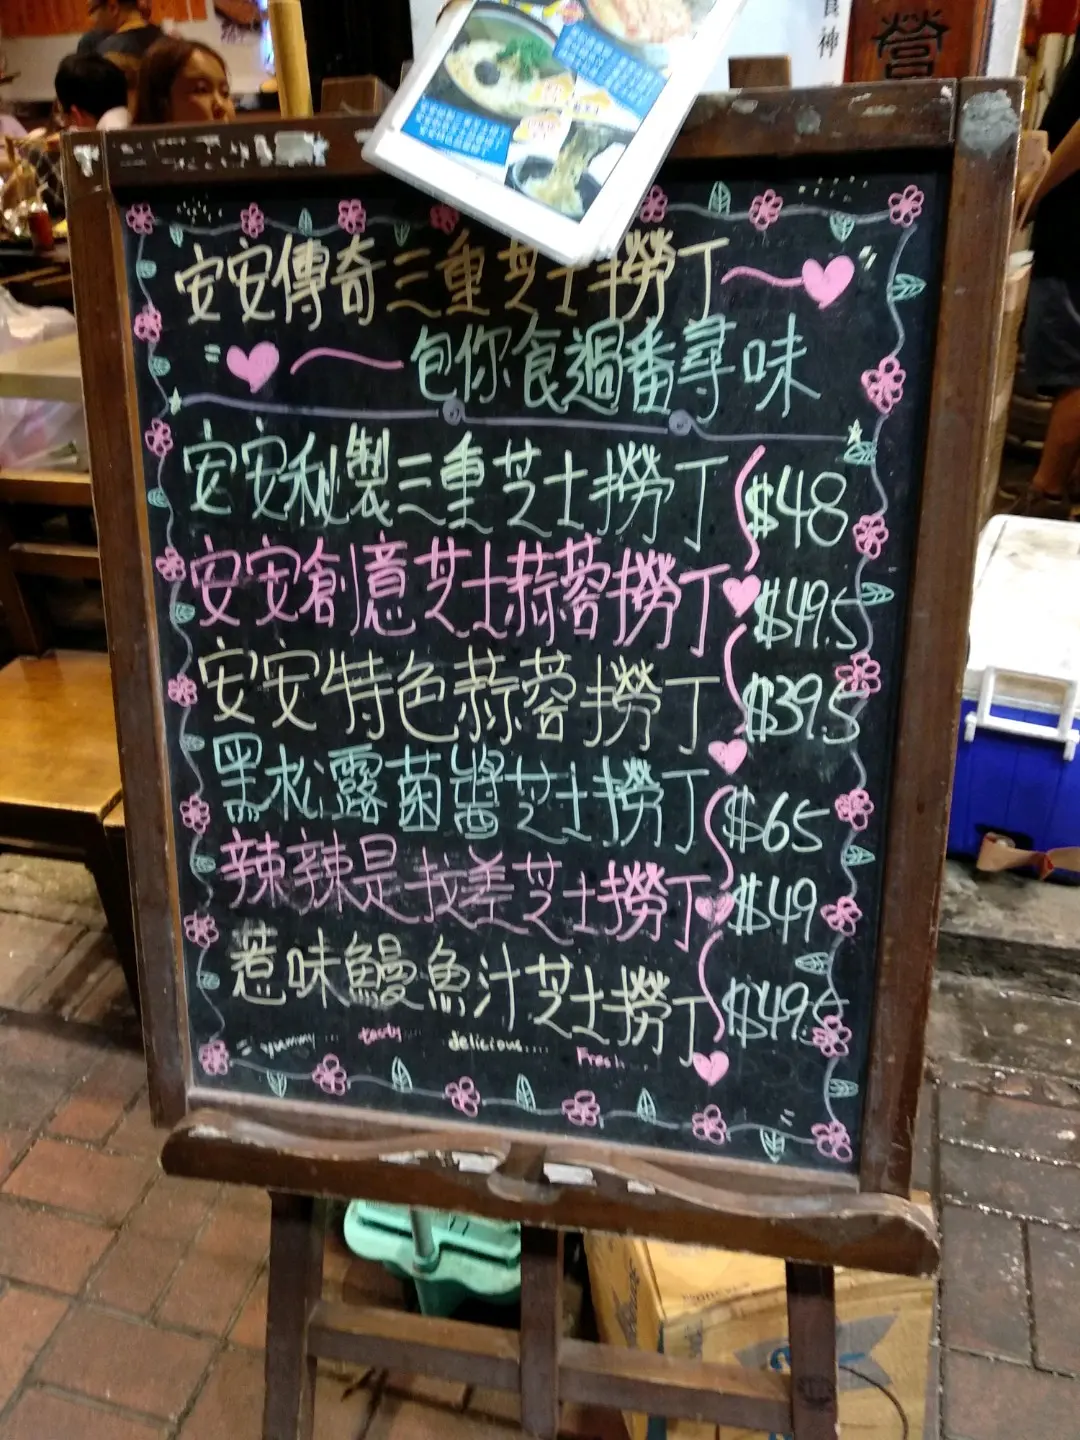 食神
營
安安傳奇三重芝士撈丁
包你食過番尋味
安安秘製三重芝士撈丁 $48
安安創意芝士蒜蓉撈丁 $49.5
安安特色蒜蓉撈丁 $39.5
黑松露菌醬芝士撈丁 $65
辣辣是找差芝士撈丁 $49
惹味鰻魚汁芝士撈丁 $49.5
yummy... tasty... delicious.... Fresh...